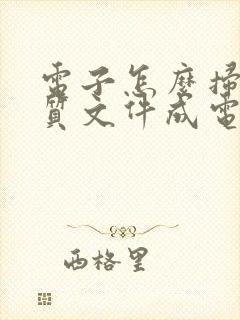 電子怎麼掃
質文件成電
西格里